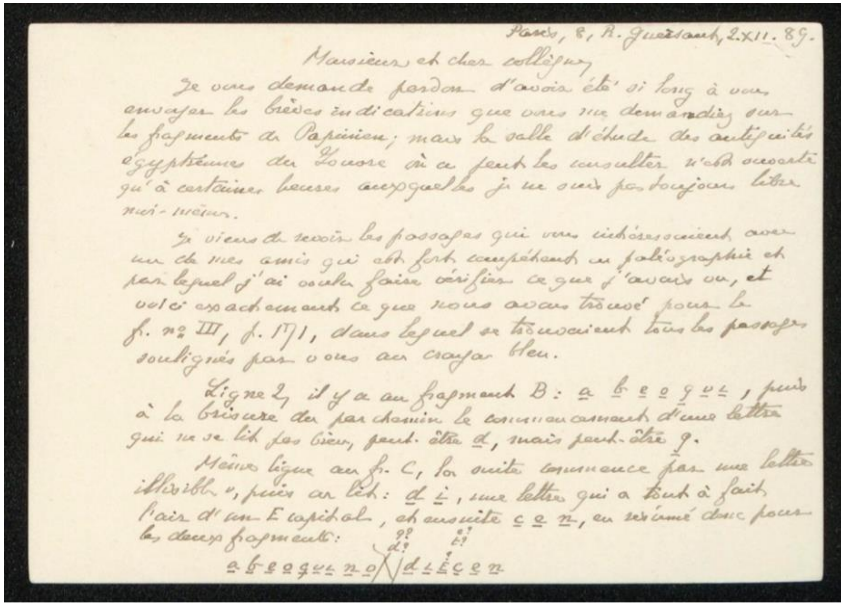 Paris, 8, R. Guersant, 2.XII.89.
Monsieur et cher collègue,
Je vous demande pardon d'avoir été si long à vous
envoyer les brèves indications que vous me demandiez sur
les fragments de Papinien; mais la salle d'étude des antiquités
égyptiennes du Louvre où on peut les consulter n'est ouverte
qu'à certaines heures auxquelles je ne suis pas toujours libre
moi-même.
Je viens de revoir les passages qui vous intéressaient avec
un de mes amis qui est fort compétent en paléographie et
par lequel j'ai voulu faire vérifier ce que j'avais vu, et
voici exactement ce que nous avons trouvé pour le
fr. no III, p. 171, dans lequel se trouvaient tous les passages
soulignés par vous au crayon bleu.
Ligne 2, il y a au fragment B: a b e o q u i, puis
à la brisure du parchemin le commencement d'une lettre
qui ne se lit pas bien, peut-être d, mais peut-être q.
Même ligne au fr. C, la suite commence par une lettre
illisible, puis on lit: d i, une lettre qui a tout à fait
l'air d'un E capital, et ensuite c e n, en résumé donc pour
les deux fragments:
q? d?
a b e o q u i n o d i E c e n